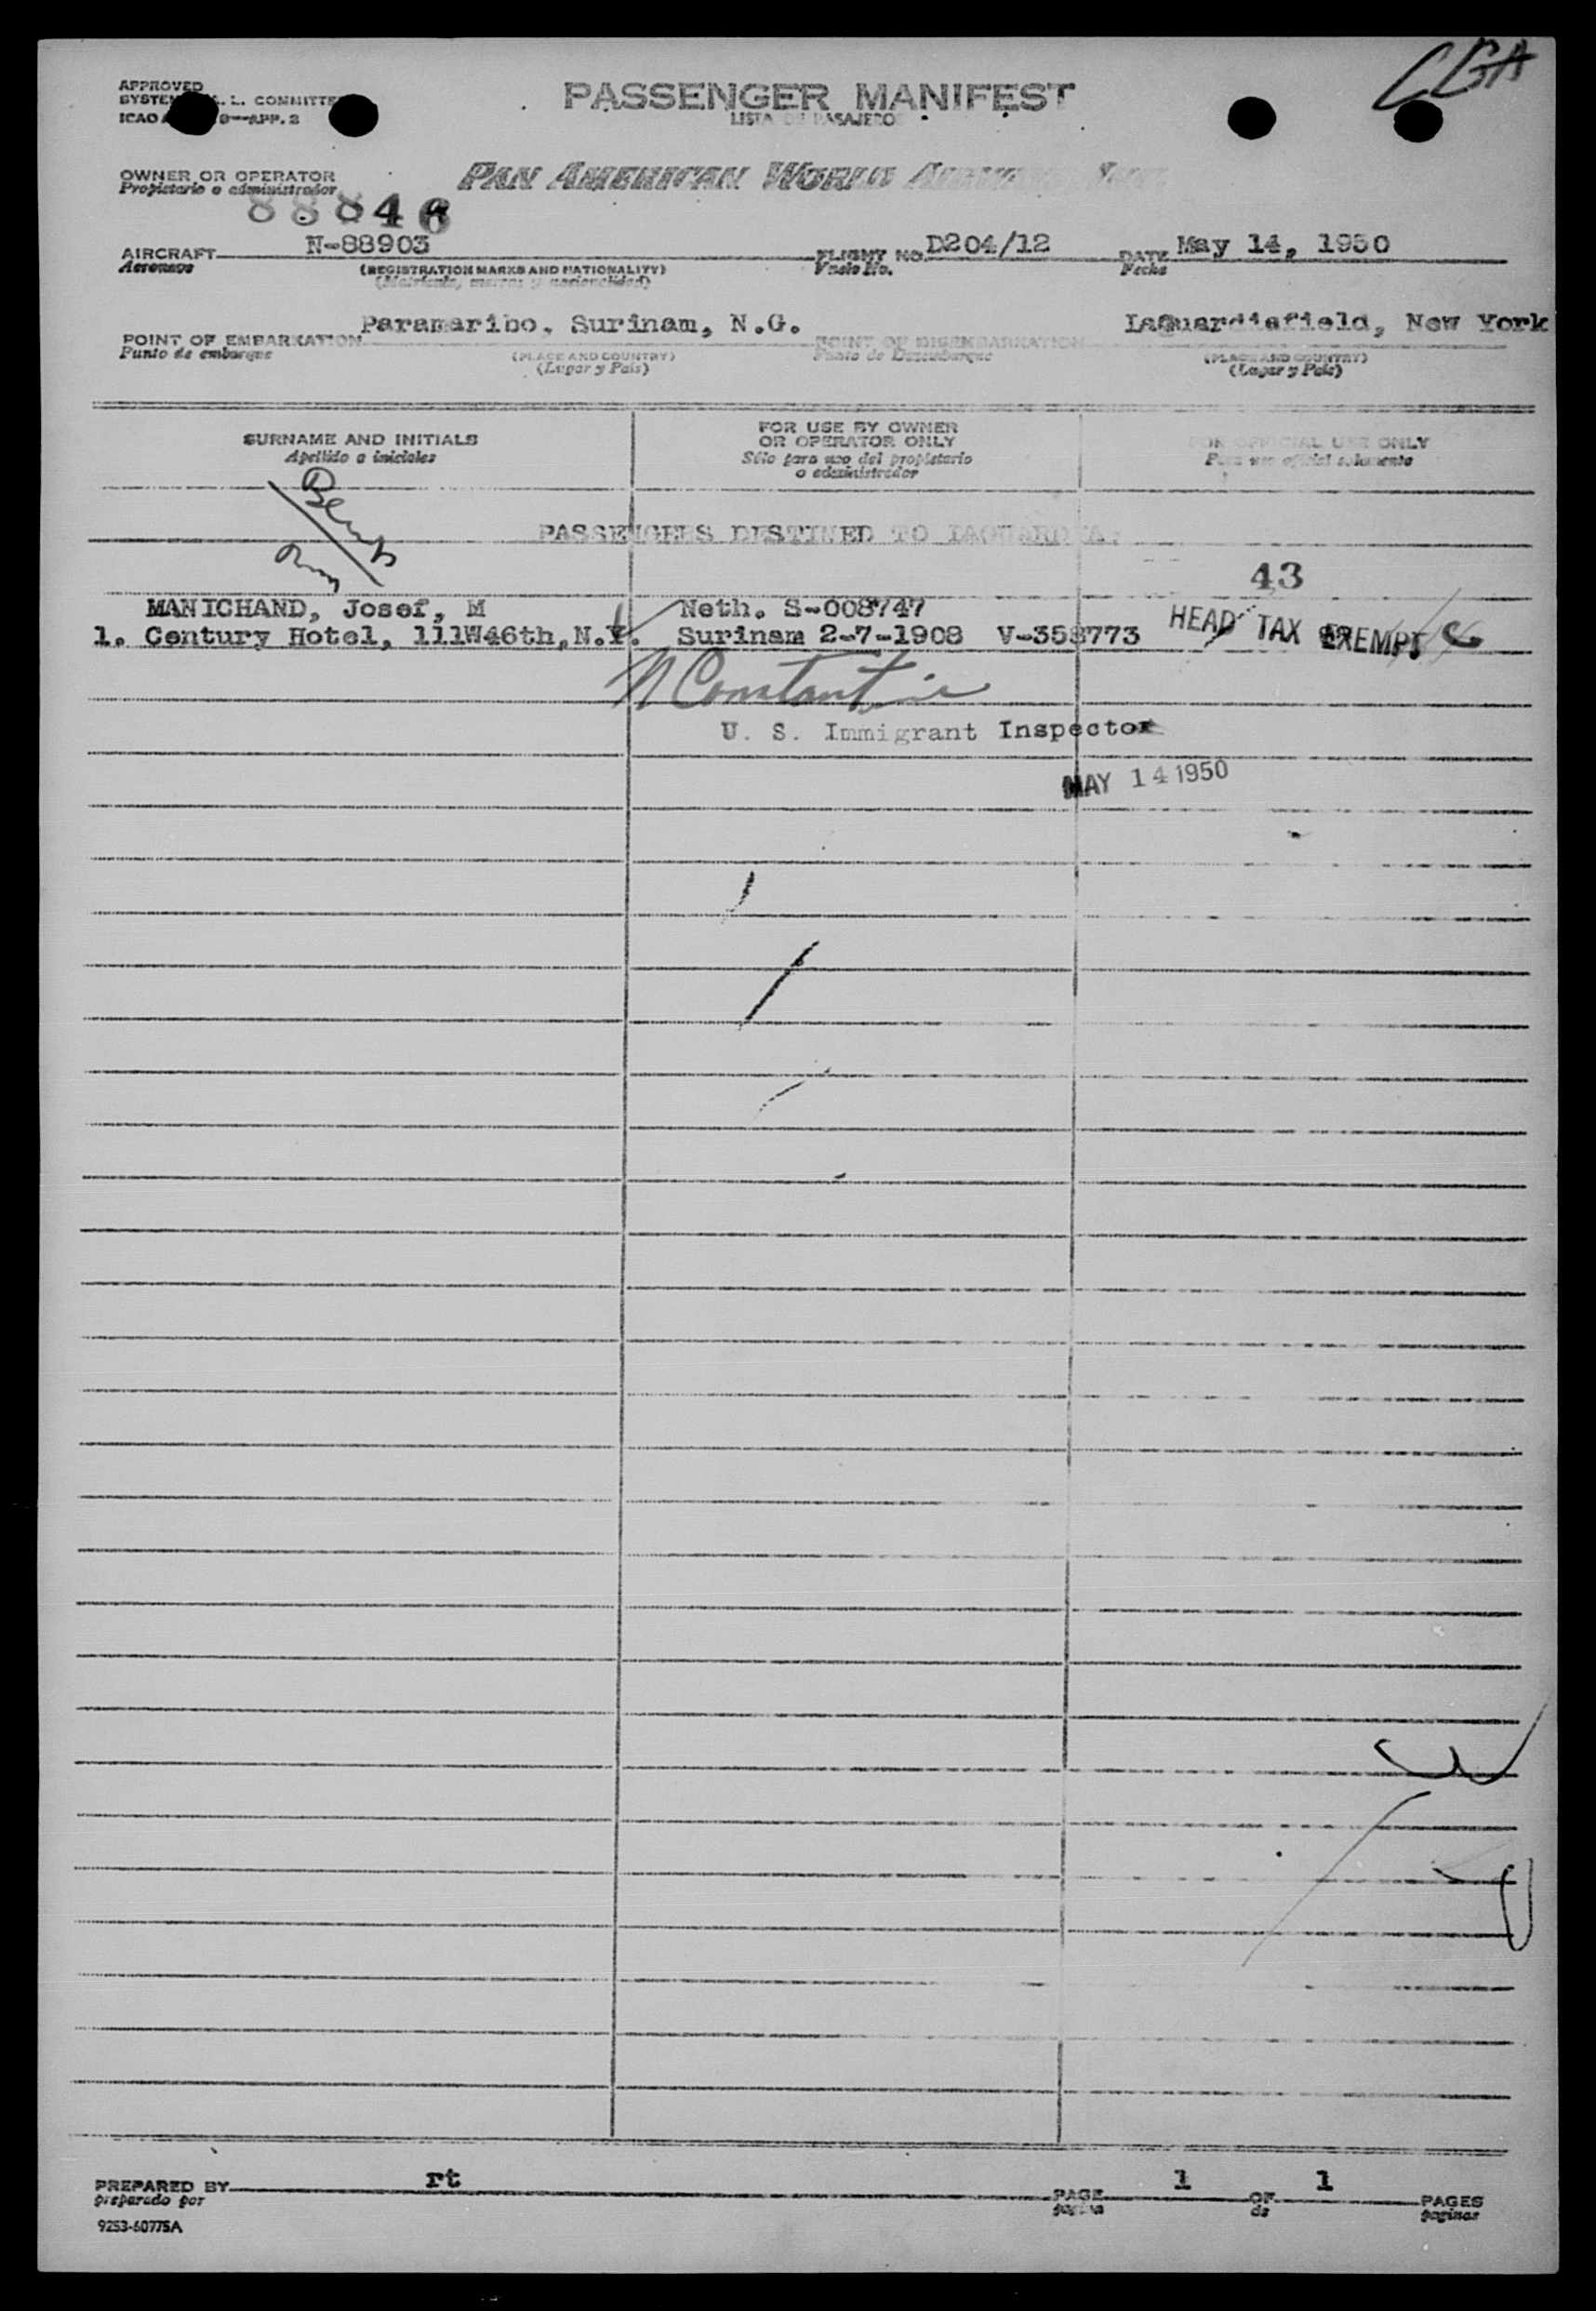 CGA
APPROVED
PASSENGER MANIFEST
LISTA DE PASAJERO
OWNER OR OPERATOR
Propietario o administrador
PAN AMERICAN WORLD
8884
AIRCRAFT N-88903 FLIGHT NO. D204/12 DATE May 14, 1950
Aeronave (REGISTRATION MARKS AND NATIONALITY) Vuelo No. Fecha
(Matrícula, marcas y nacionalidad)
POINT OF EMBARKATION Paramaribo, Surinam, N.G. POINT OF DISEMBARKATION LaGuardiafield, New York
Punto de embarque (PLACE AND COUNTRY) Punto de Desembarque (PLACE AND COUNTRY)
(Lugar y País) (Lugar y País)
SURNAME AND INITIALS FOR USE BY OWNER OR OPERATOR ONLY FOR OFFICIAL USE ONLY
Apellido o iniciales Sólo para uso del propietario o administrador Para uso oficial solamente
PASSENGERS DESTINED TO LAGUARDIA:
43
MANICHAND, Josef, M Neth. S-008747
1. Century Hotel, 111W46th,N.Y. Surinam 2-7-1908 V-358773 HEAD TAX EXEMPT
N Constantine
U. S. Immigrant Inspector
MAY 14 1950
PREPARED BY rt PAGE 1 OF 1 PAGES
preparado por página de paginas
9253-60775A